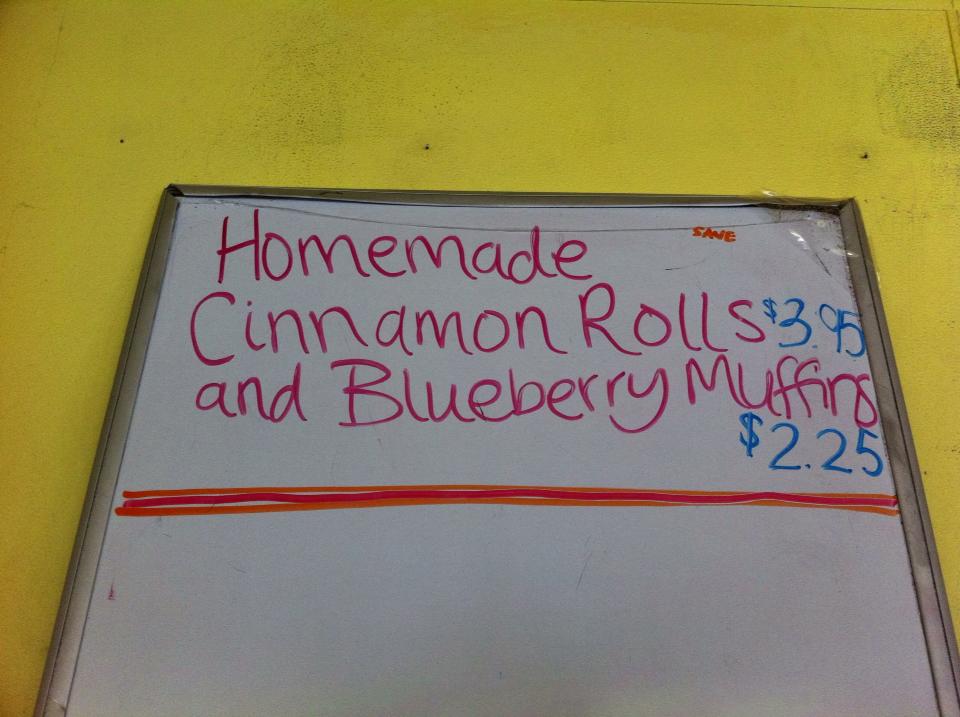 SAVE
Homemade
Cinnamon Rolls $3.95
and Blueberry Muffins
$2.25